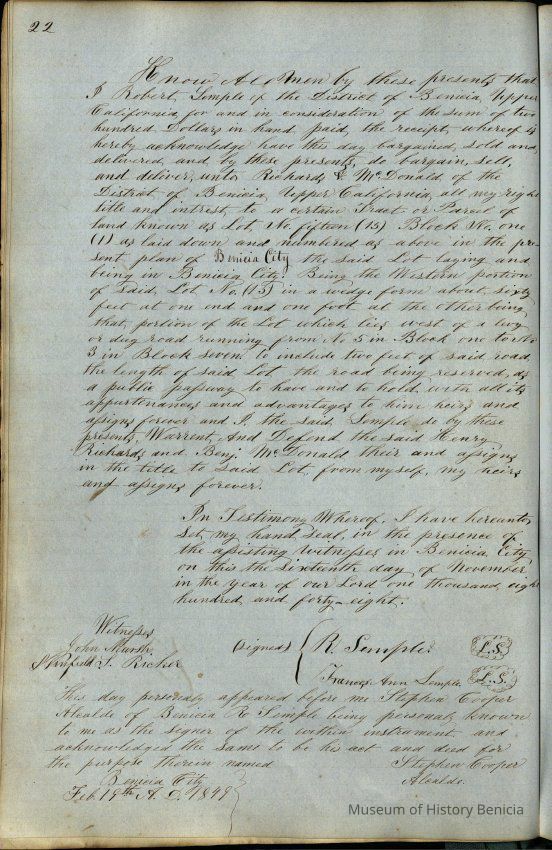 22
Know All Men by these presents that
I Robert Semple of the District of Benicia, Upper
California, for and in consideration of the sum of two
hundred Dollars in hand paid, the receipt whereof is
hereby acknowledge have this day bargained, sold and
delivered, and by these presents, do bargain, sell,
and deliver, unto Richards & McDonald of the
District of Benicia, Upper California, all my right
title and intrest to a certain Tract or Parcel of
land known as Lot, No. fifteen (15) Block No. one
(1) as laid down and numbered as above in the pre-
sent plan of Benicia City the said Lot laying and
being in Benicia City. Being the Western portion
of said, Lot No. (15) in a wedge form about sixty
feet at one end and one foot at the other being
that, portion of the Lot which lies west of a
or dug road running from No 5 in Block one to No
3 in Block seven to include two feet of said road
the length of said Lot the road being reserved, as
a public passway to have and to hold with all its
appurtenances and advantages to him heirs and
assigns forever and I, the said Semple do by these
presents, Warrent, And Defend the said Henry
Richards and Benj. McDonald their and assigns
in the title to said Lot, from myself, my heirs
and assigns forever.
In Testimony Whereof, I have hereunto
set my hand, seal, in the presence of
the assisting Witnesses in Benicia City
on this the Sixteenth day of November
in the year of our Lord one thousand, eigh
hundred and forty-eight.
Witnesses
John Marsh. (signed) R. Semple. (L.S.)
S. Richer
Frances Ann Semple. (L.S.)
This day personaly appeared before me Stephen Cooper
Alcalde of Benicia R. Semple being personaly known
to me as the signer of the within instrument and
acknowledged the same to be his act and deed for
the purpose therein named Stephen Cooper
Benicia City Alcalde.
Feb. 19th A.D. 1849
Museum of History Benicia